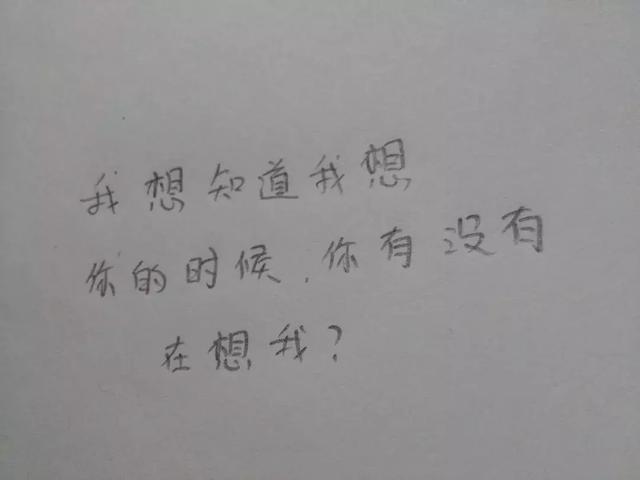 我想知道我想
你的时候,你有没有
在想我?